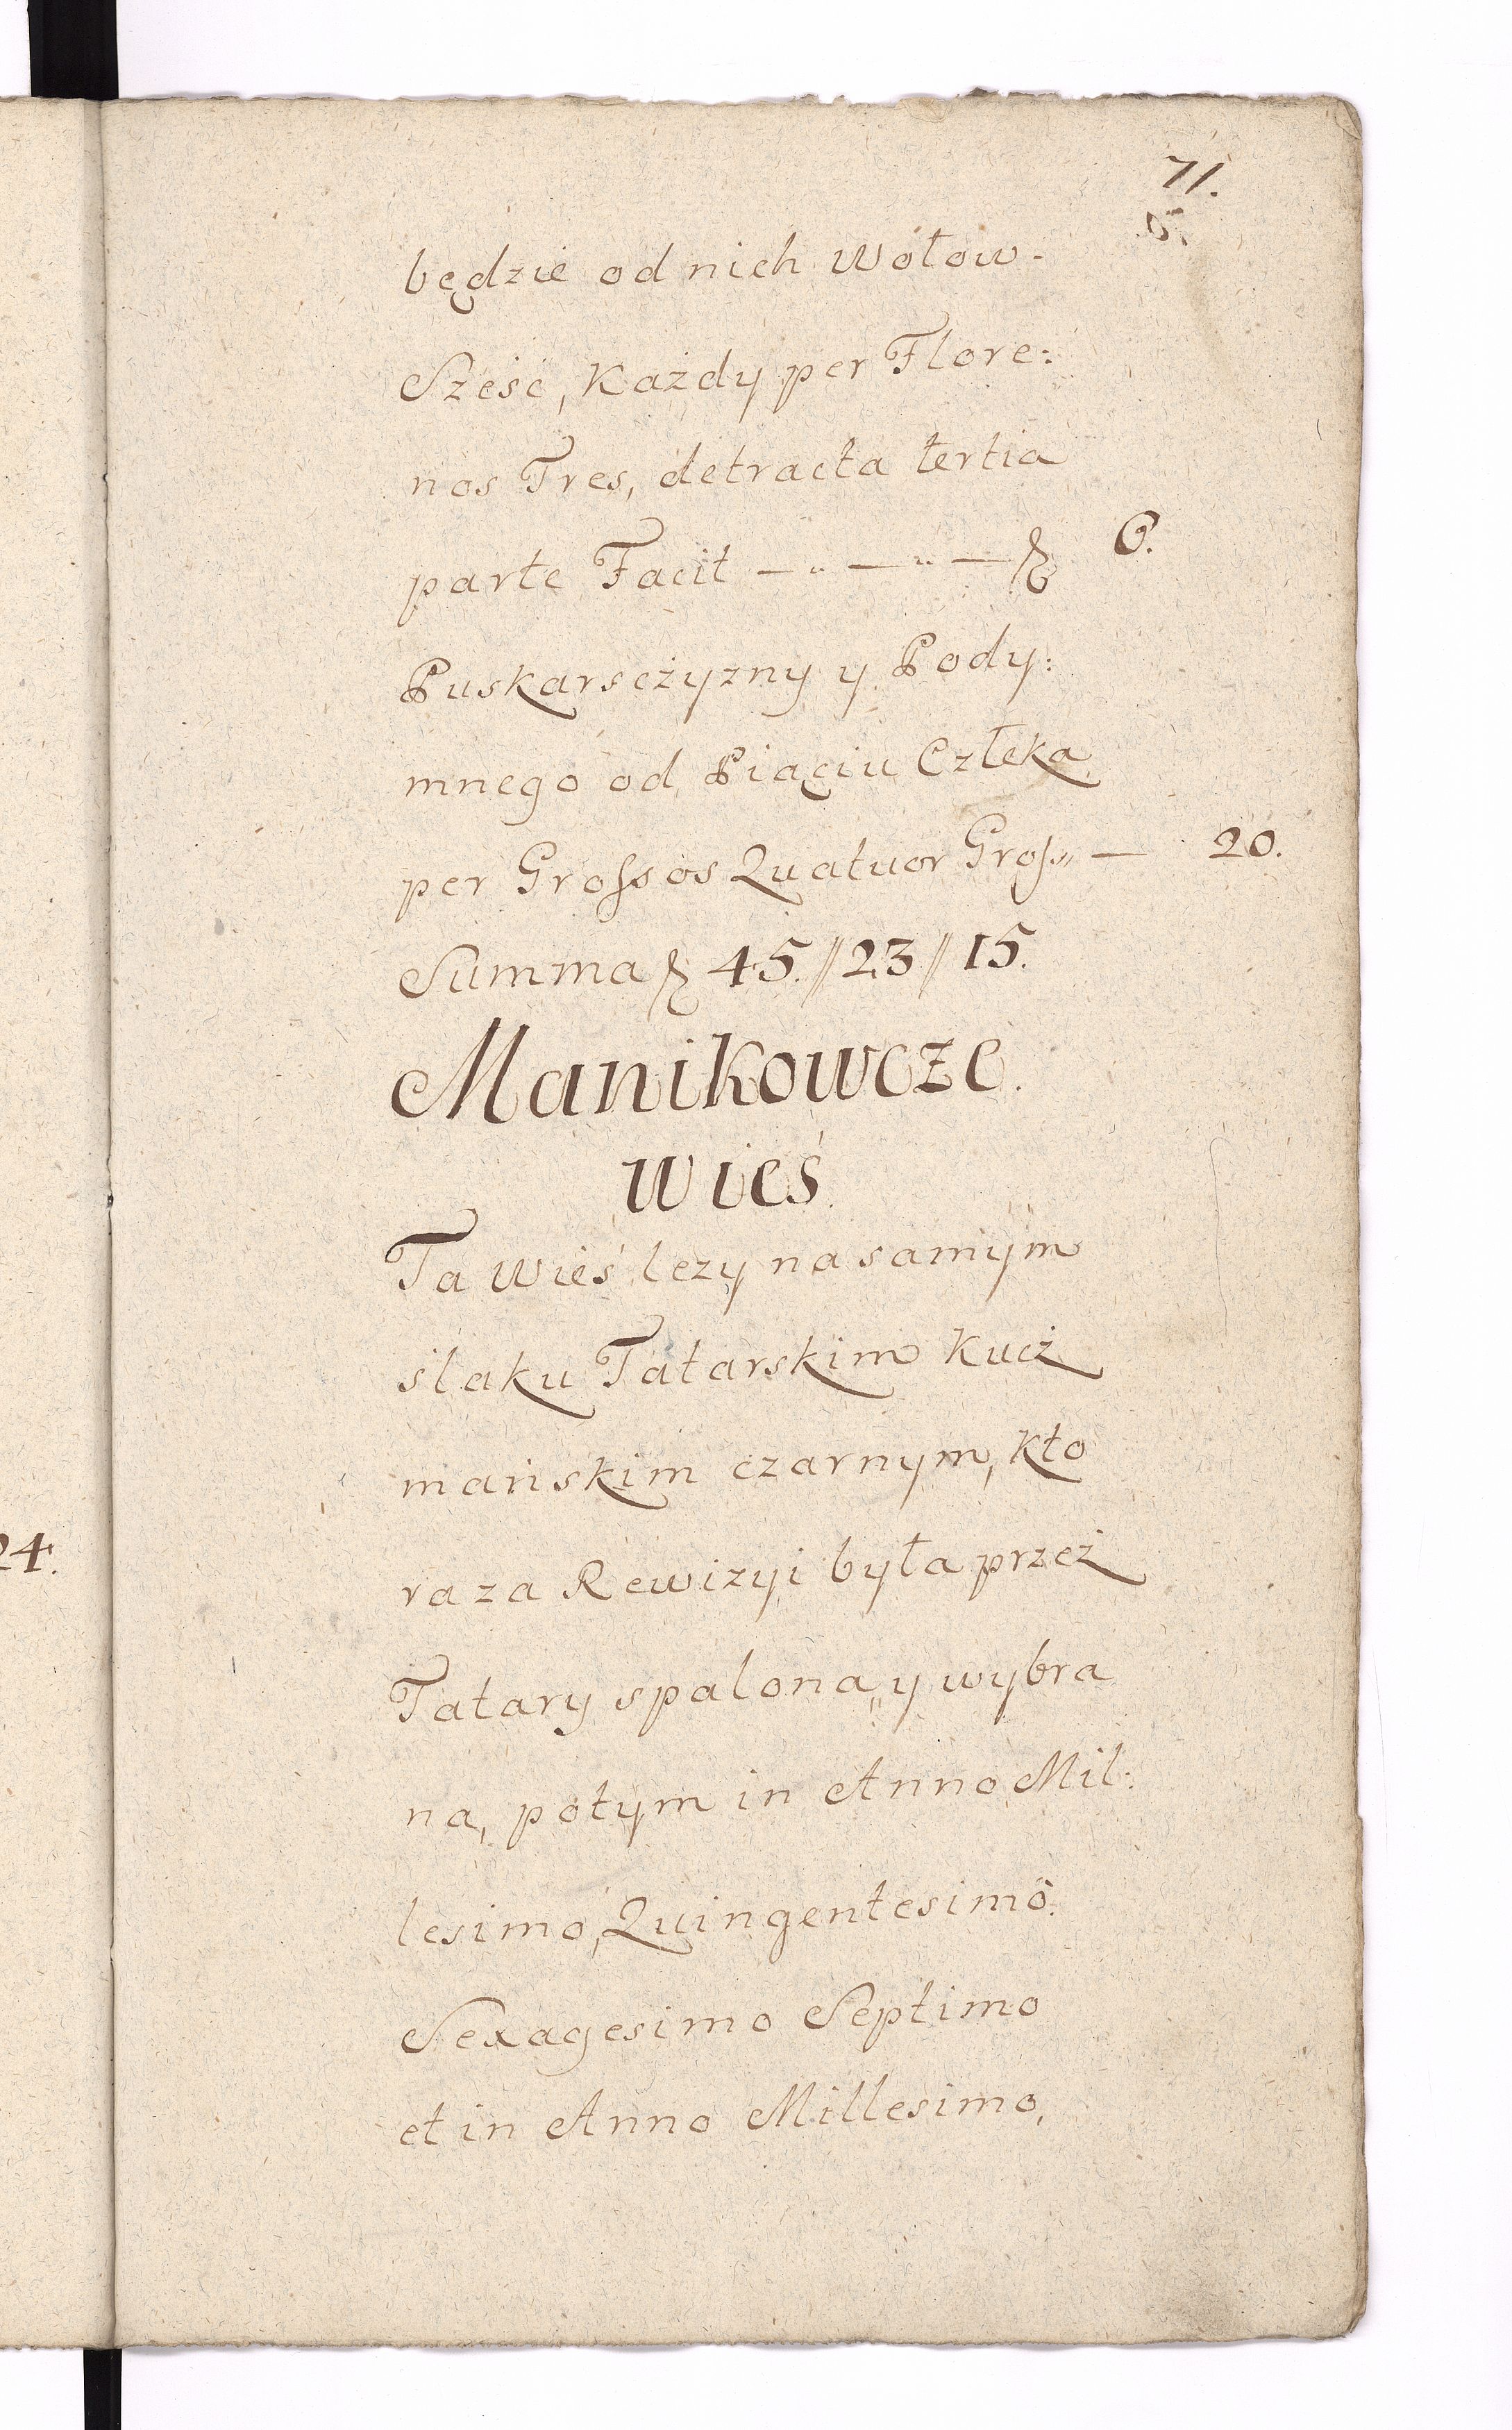 71.
5.
będzie od nich wołow.
Sześć, każdy per Flore:
nos Tres, detracta tertia
parte Facit — „ — „ — fl 6.
Puskarsczyzny y Pody:
mnego od Piąciu Człeka
per Grossos Quatuor Gross„ — 20.
Summa fl 45.//23//15.
Manikowcze.
wieś
Ta wieś lezy na samym
ślaku Tatarskim Kucz
mańskim czarnym, kto
ra za Rewizyi była przez
Tatary spalona„y wybra
na, potym in Anno Mil:
lesimo, Quingentesimo.
Sexagesimo Septimo
et in Anno Millesimo,
24.